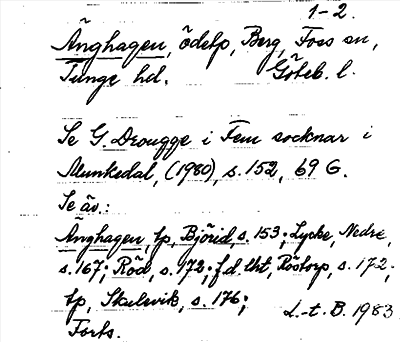 1-2.
Änghagen, ödelp, Berg, Foss sn,
Tunge hd. Göteb. l.
Se G. Drougge i Fem socknar i
Munkedal, (1980), s. 152, 69 G.
Se äv.:
Änghagen, tp, Björid, s. 153; Lycke, Nedre,
s. 167; Röd, s. 172; f.d. lht, Röstorp, s. 172;
tp, Skulevik, s. 176;
L.-t. B. 1983
Forts.